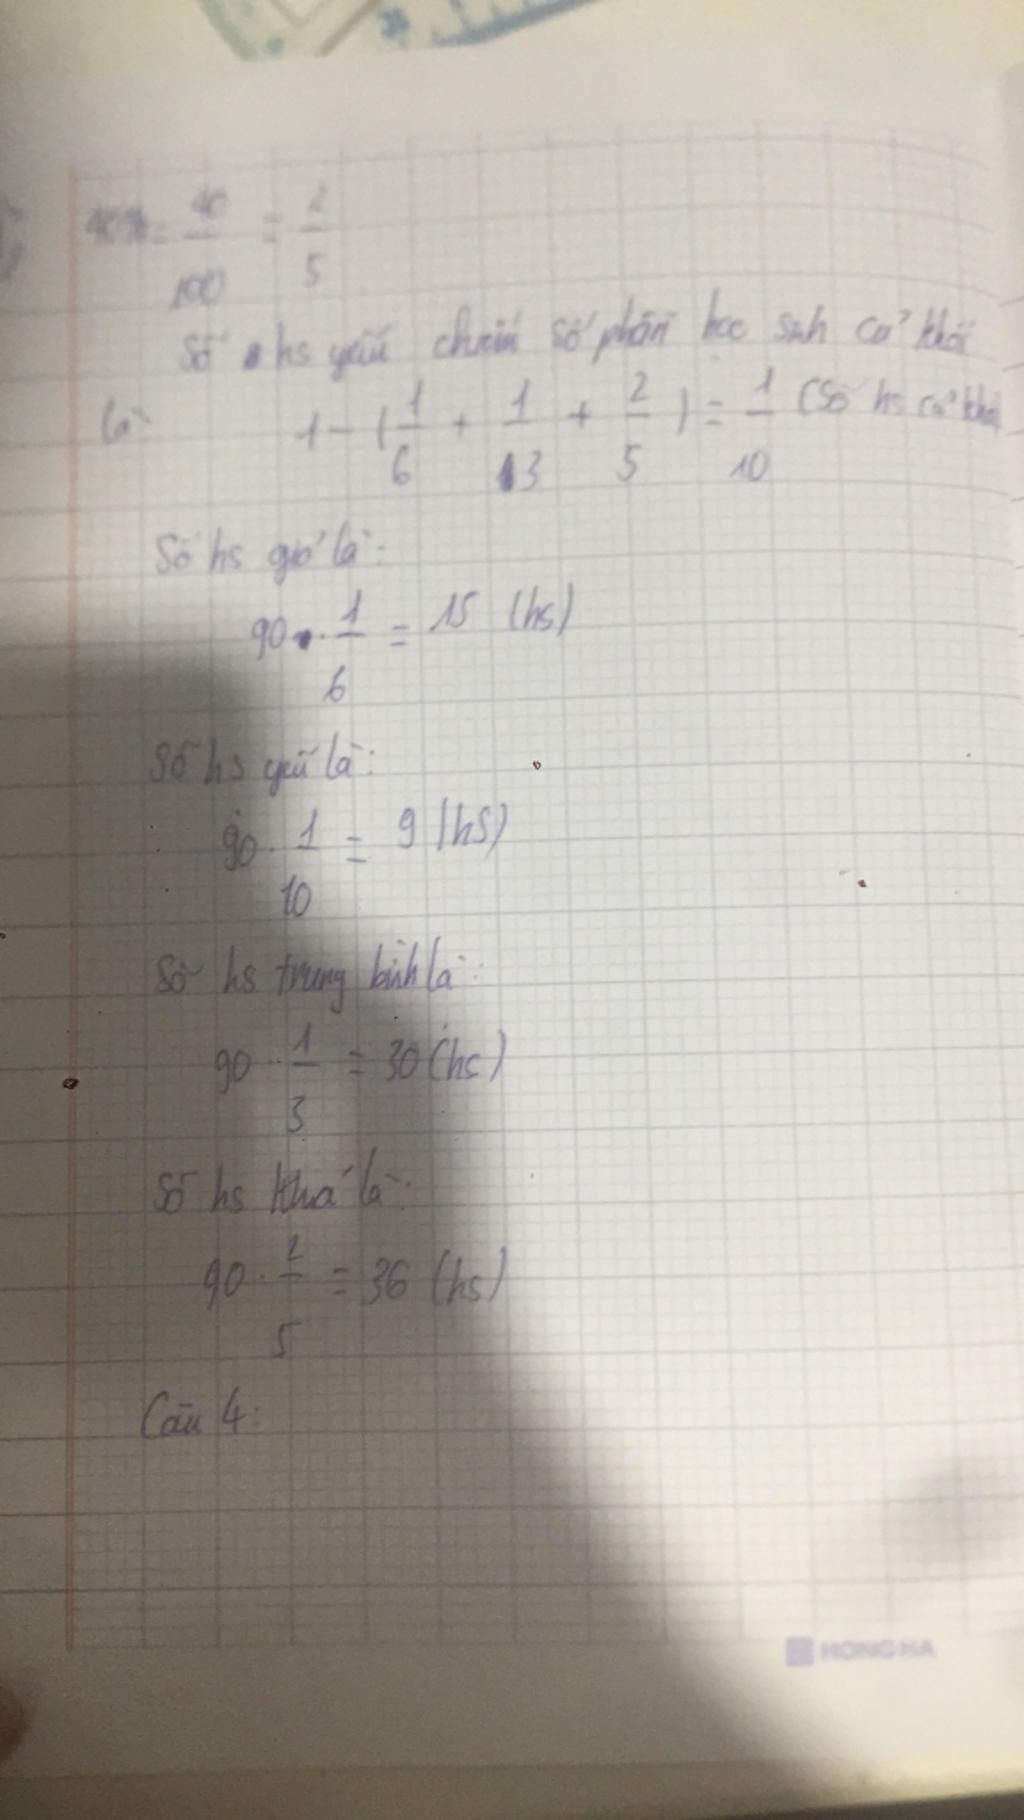 40% = 40/100 = 2/5
Số hs yếu chiếm số phần học sinh cả khối
là: 1 - (1/6 + 1/3 + 2/5) = 1/10 (số hs cả khối
Số hs giỏi là:
90 . 1/6 = 15 (hs)
Số hs yếu là:
90 . 1/10 = 9 (hs)
Số hs trung bình là:
90 . 1/3 = 30 (hs)
Số hs khá là:
90 . 2/5 = 36 (hs)
Câu 4:
HONG HA